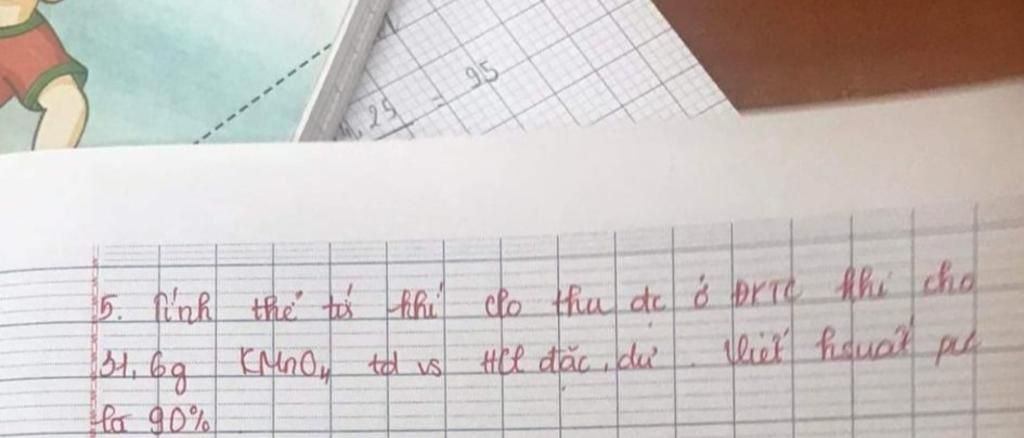 25 = 95
5. Tính thể tổ khí clo thu đc ở ĐKTC khi cho
31,6g KMnO4 td vs HCl đặc, dư. biết hsuất pư
là 90%